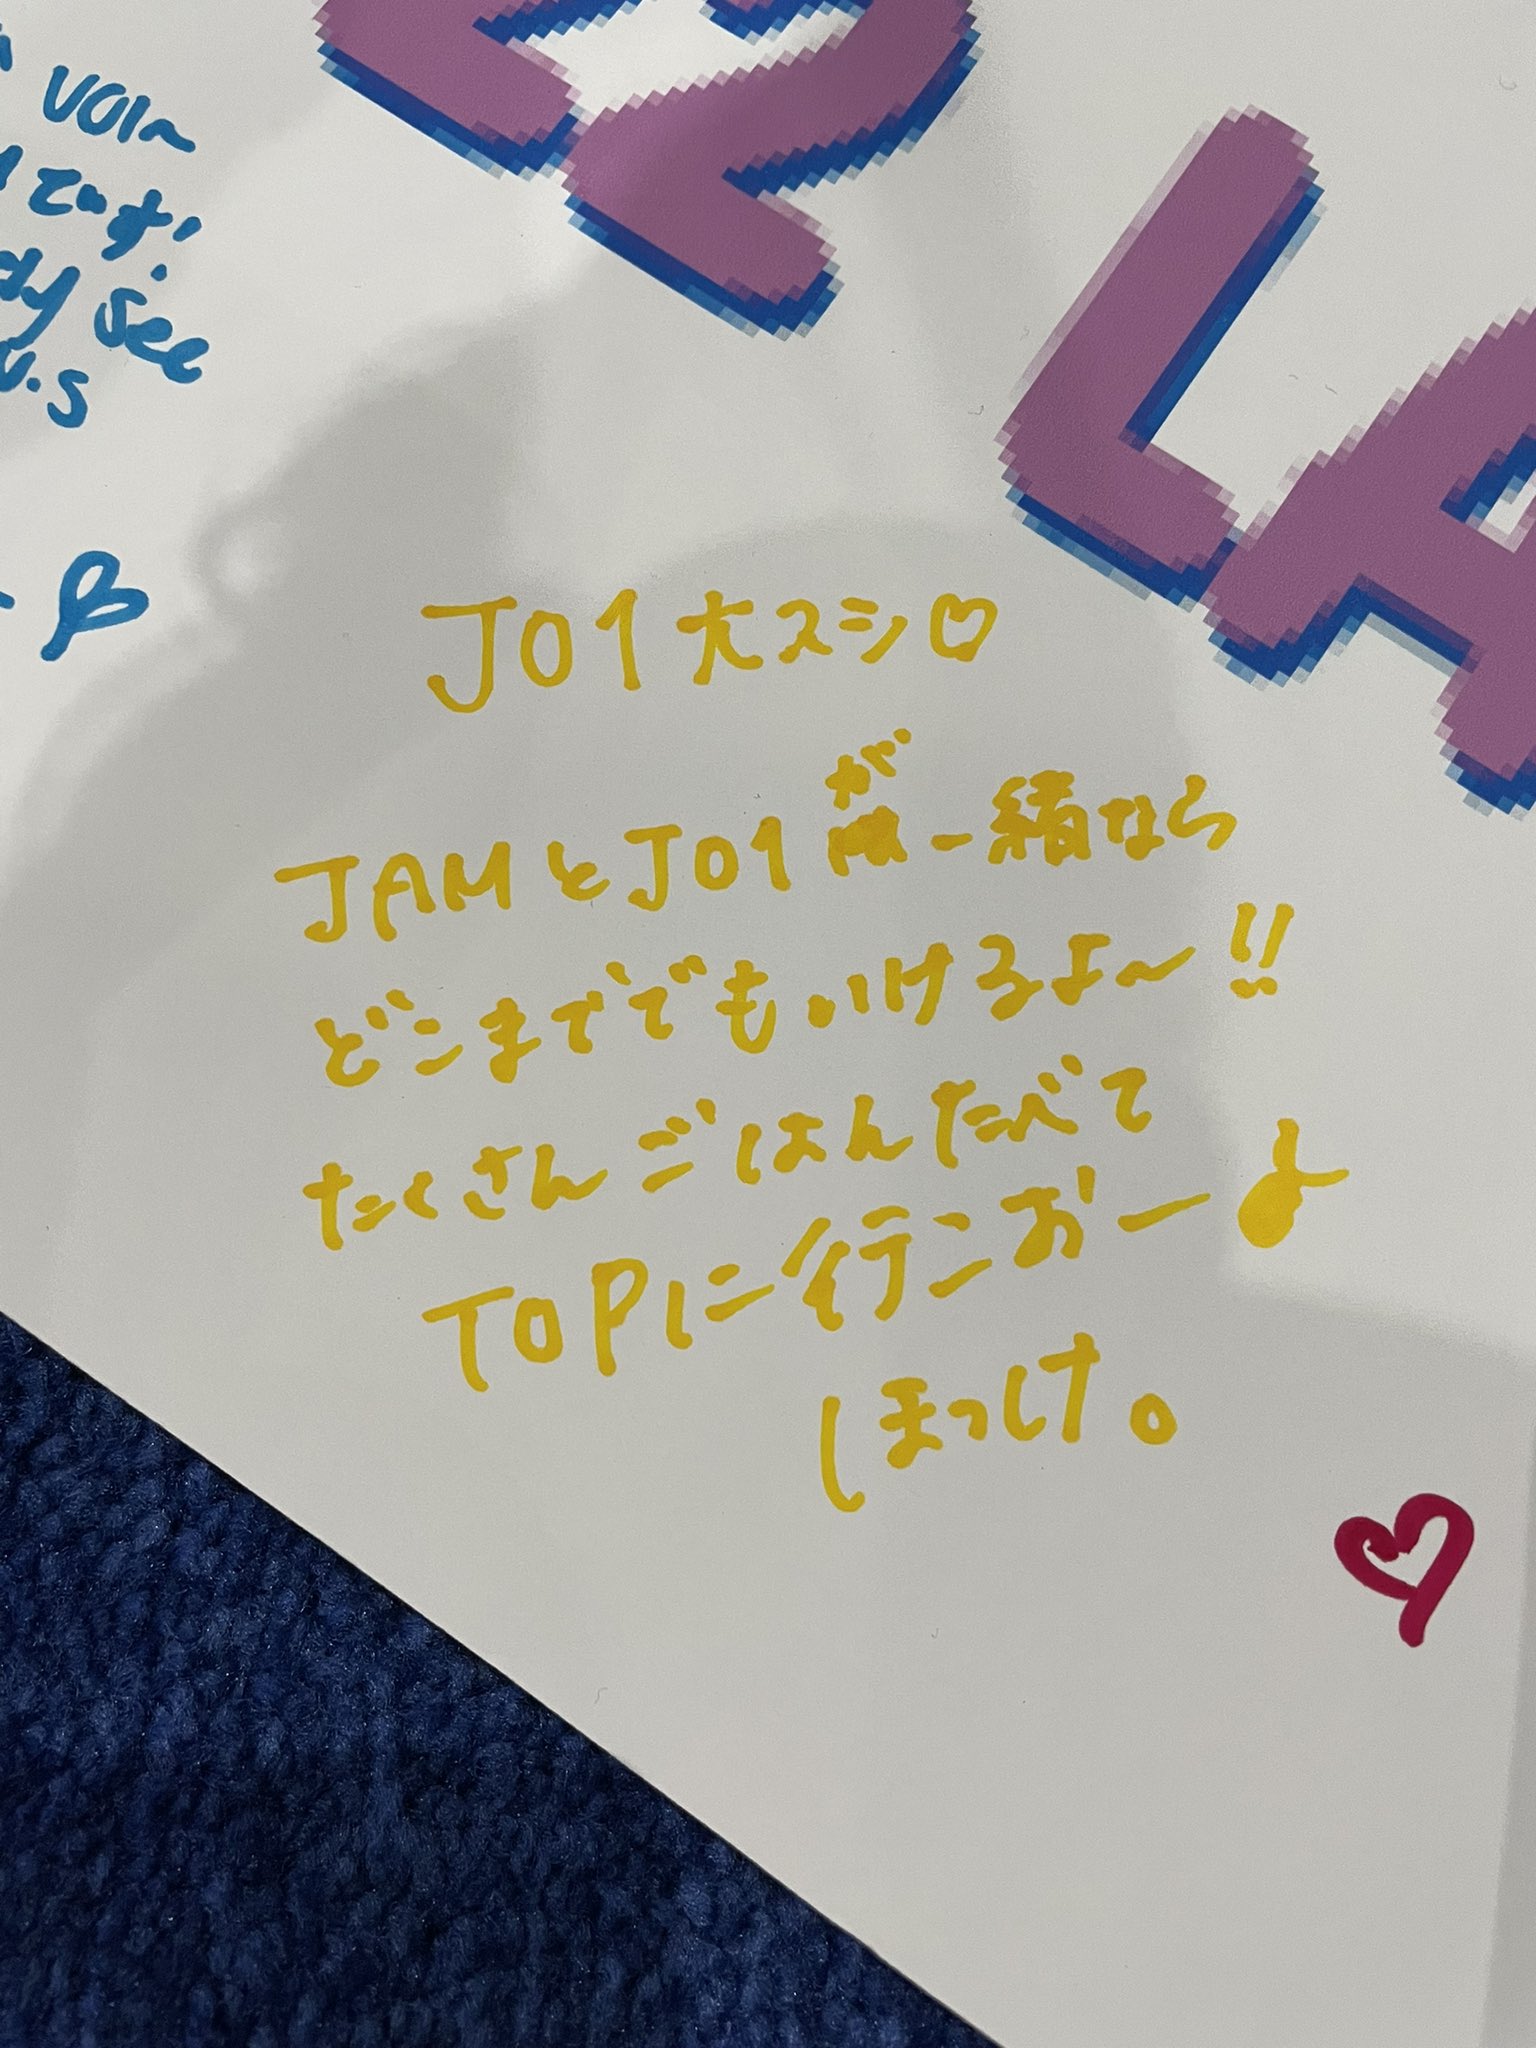 VOl〜
てます!
dy see
U.S
LA
JO1大スシ♡
JAMとJO1が一緒なら
どこまででもいけるよ〜!!
たくさんごはんたべて
TOPに行こおー♪
しほっけ。